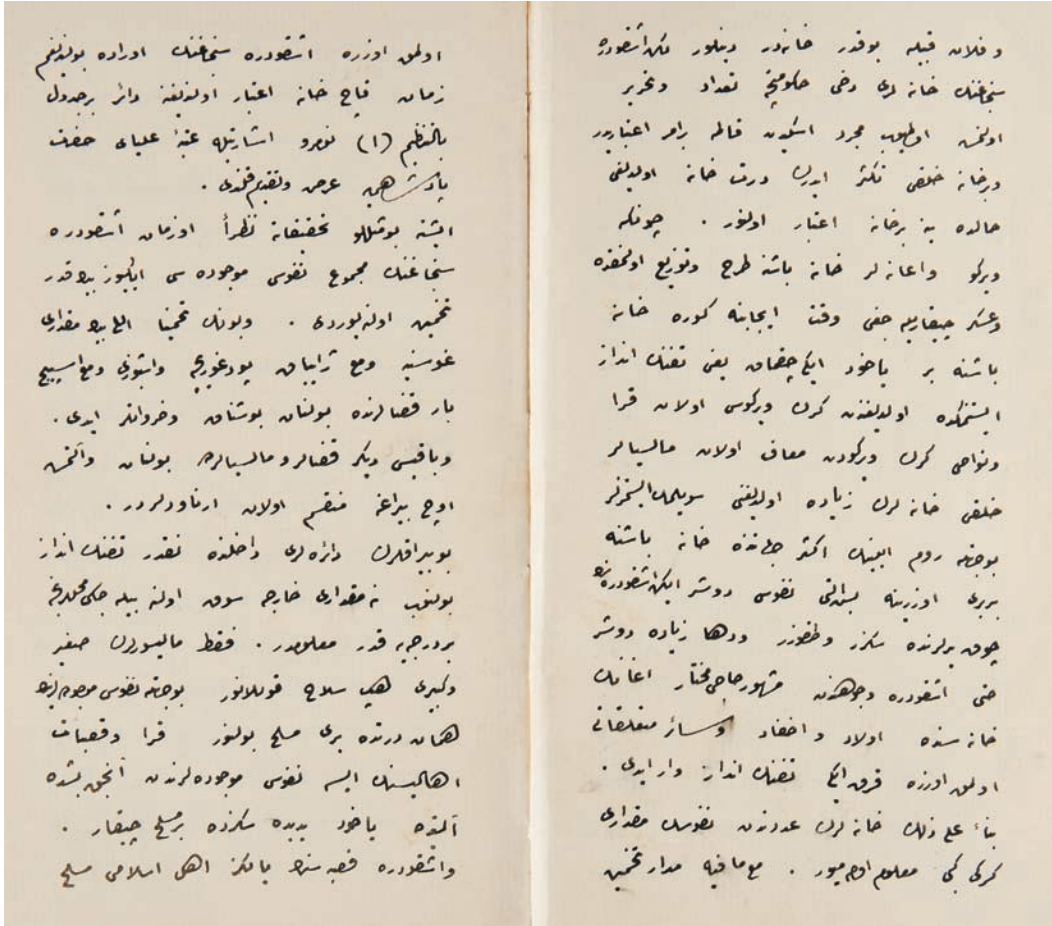 و فلان قبیله بو قدر خانه‌در دینلور لکن اشقودره
سنجاغنك خانه لری دخی حکومتجه تعداد و تحریر
اولنمش اولمیوب مجرد اسكیدن قالمه برر اعتباریدر
و برخانه خلقی تكثر ایدرك درت خانه اولدیغی
حالده ینه برخانه اعتبار اولنور . چونكه
ویركو و اعانه لر خانه باشنه طرح و توزیع اولنمقده
و عسكر چیقاریله جغی وقت ایجابنه كوره خانه
باشنه بر یاخود ایكی چقماق یعنی تفنك انداز
ایستنمكده اولدیغندن كرك ویركوسی اولان قرا
و نواحی كرك ویركودن معاف اولان مالسیالر
خلقی خانه لرك زیاده اولدیغنی سویلمك ایستمزلر
بوجهتله روم ایلینك اكثر جهاتنده خانه باشنه
بربری اوزرینه بش التی نفوس دوشر ایكن اشقودره‌نك
چوق یرلرنده سكزر و طقوزر و دها زیاده دوشر
حتی اشقودره وجوهندن مشهور حاجی مختار اغانك
خانه سنده اولاد و احفاد و سائر متعلقاتی
اولمق اوزره قرق ایكی تفنك انداز وار ایدی .
بناءً علی ذلك خانه لرك عددندن نفوسك مقداری
كركی كبی معلوم اوله‌میور . مع مافیه مدار تخمین
اولمق اوزره اشقودره سنجاغنك اوراده بولندیغم
زمان قاچ خانه اعتبار اولندیغنه دائر برجدول
بالتنظیم (١) نومرو اشارتیله عتبهٔ علیای حضرت
پادشاهی‌یه عرض و تقدیم قلندی .
ایشته بو مثللو تحقیقاته نظراً اوزمان اشقودره
سنجاغنك مجموع نفوس موجوده سی ایكیوز بیك قدر
تخمین اولنیوردی . وبونك تخمیناً اللی بیك مقداری
غوسنیه و مع بار قضالرنده بولنان بوشناق و خروادلر ایدی .
و باقیسی دیكر قضالر و مالسیالرده بولنان و آلتمش
اوچ بیراغه منقسم اولان ارناودلردر .
بو بیراقلرك دائره لری داخلنده نقدر تفنك انداز
بولنوب نه مقداری خارجه سوق اولنه بیله جكی
بر درجه‌یه قدر معلومدر . فقط مالیسورلرك صغیر
و كبیری هپ سلاح قوللانور بوجهتله نفوس موجوده‌لرینك
همان درتده بری مسلح بولنور قرا و قصبات
اهالیسنك ایسه نفوس موجوده‌لرندن آنجق بشده
آلتیده یاخود یدیده سكزده بر مسلح چیقار .
و اشقودره قصبه سنك یالكز اهل اسلامی مسلح